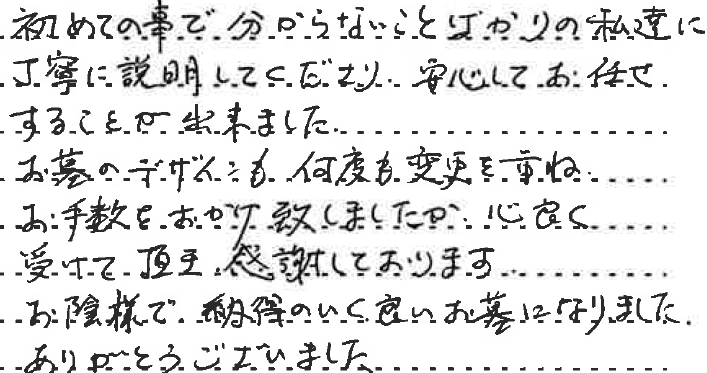 初めての事で分からないことばかりの私達に
丁寧に説明してくださり、安心してお任せ
することが出来ました。
お墓のデザインも何度も変更を重ね
お手数をおかけ致しましたが、心良く
受けて頂き、感謝しております。
お陰様で、納得のいく良いお墓になりました。
ありがとうございました。